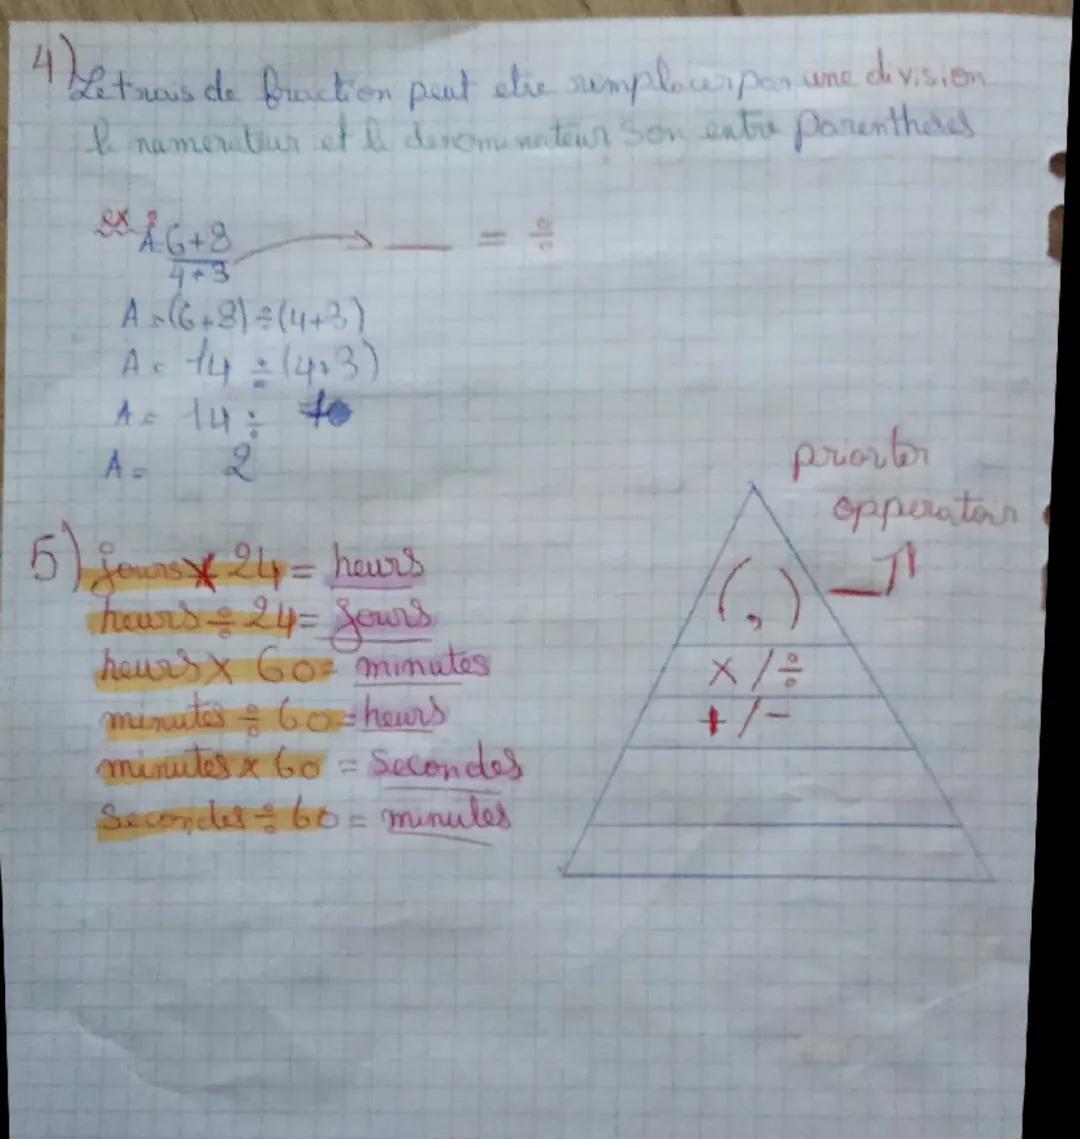 4) Le trais de fraction peut etre remplacer par une division
le namerateur et le denominateur son entre parentheses
ex:
A 6+8
4+3
___ = ÷
A = (6+8) ÷ (4+3)
A = 14 ÷ (4+3)
A = 14 ÷
A = 2
priorter
opperatoir
( , )
× / ÷
+ / -
5) jours × 24 = heurs
heurs ÷ 24 = jours
heurs × 60 = minutes
minutes ÷ 60 = heurs
minutes × 60 = secondes
secondes ÷ 60 = minutes